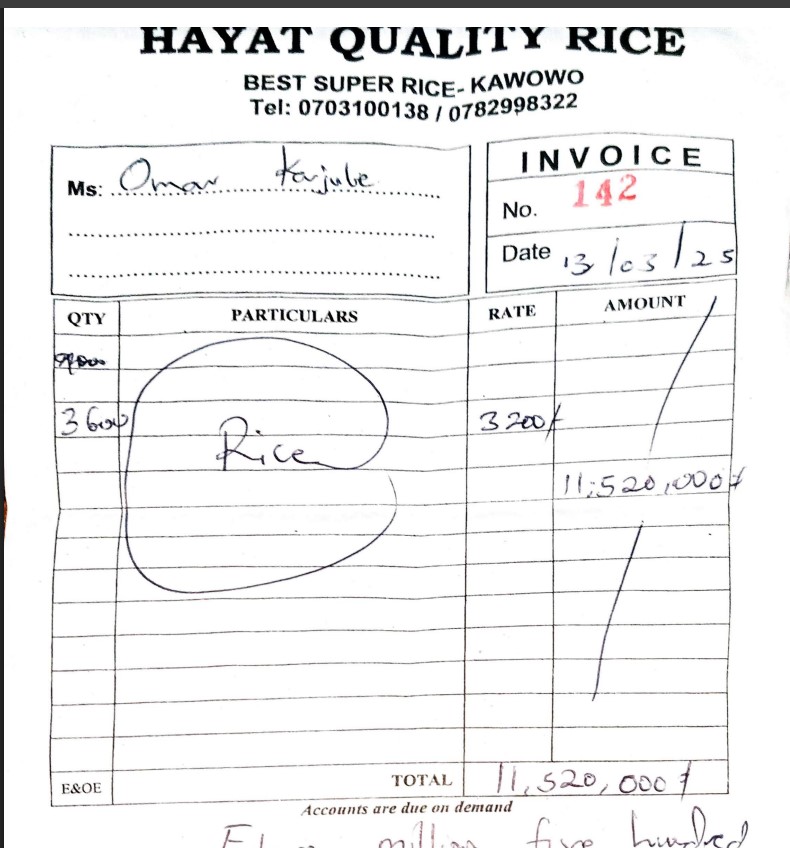 HAYAT QUALITY RICE
BEST SUPER RICE- KAWOWO
Tel: 0703100138 / 0782998322
Ms: Omar Kajube
INVOICE
No. 142
Date 13/03/25
QTY PARTICULARS RATE AMOUNT
3600 Rice 3200/
11,520,000/
E&OE TOTAL 11,520,000/
Accounts are due on demand
million five hundred